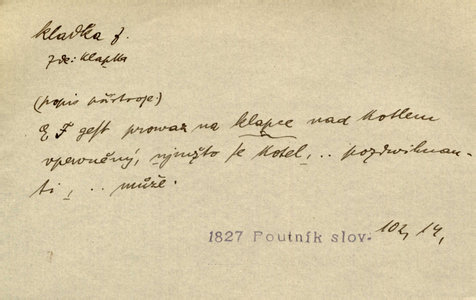 kladka f.
zde: klapka
(popis přístroje)
E F gest prowaz na klapce nad kotlem
vpevněný, njmžto se kotel, .. pozdwihnau-
ti, .. může.
1827 Poutník slov. 102, 14,